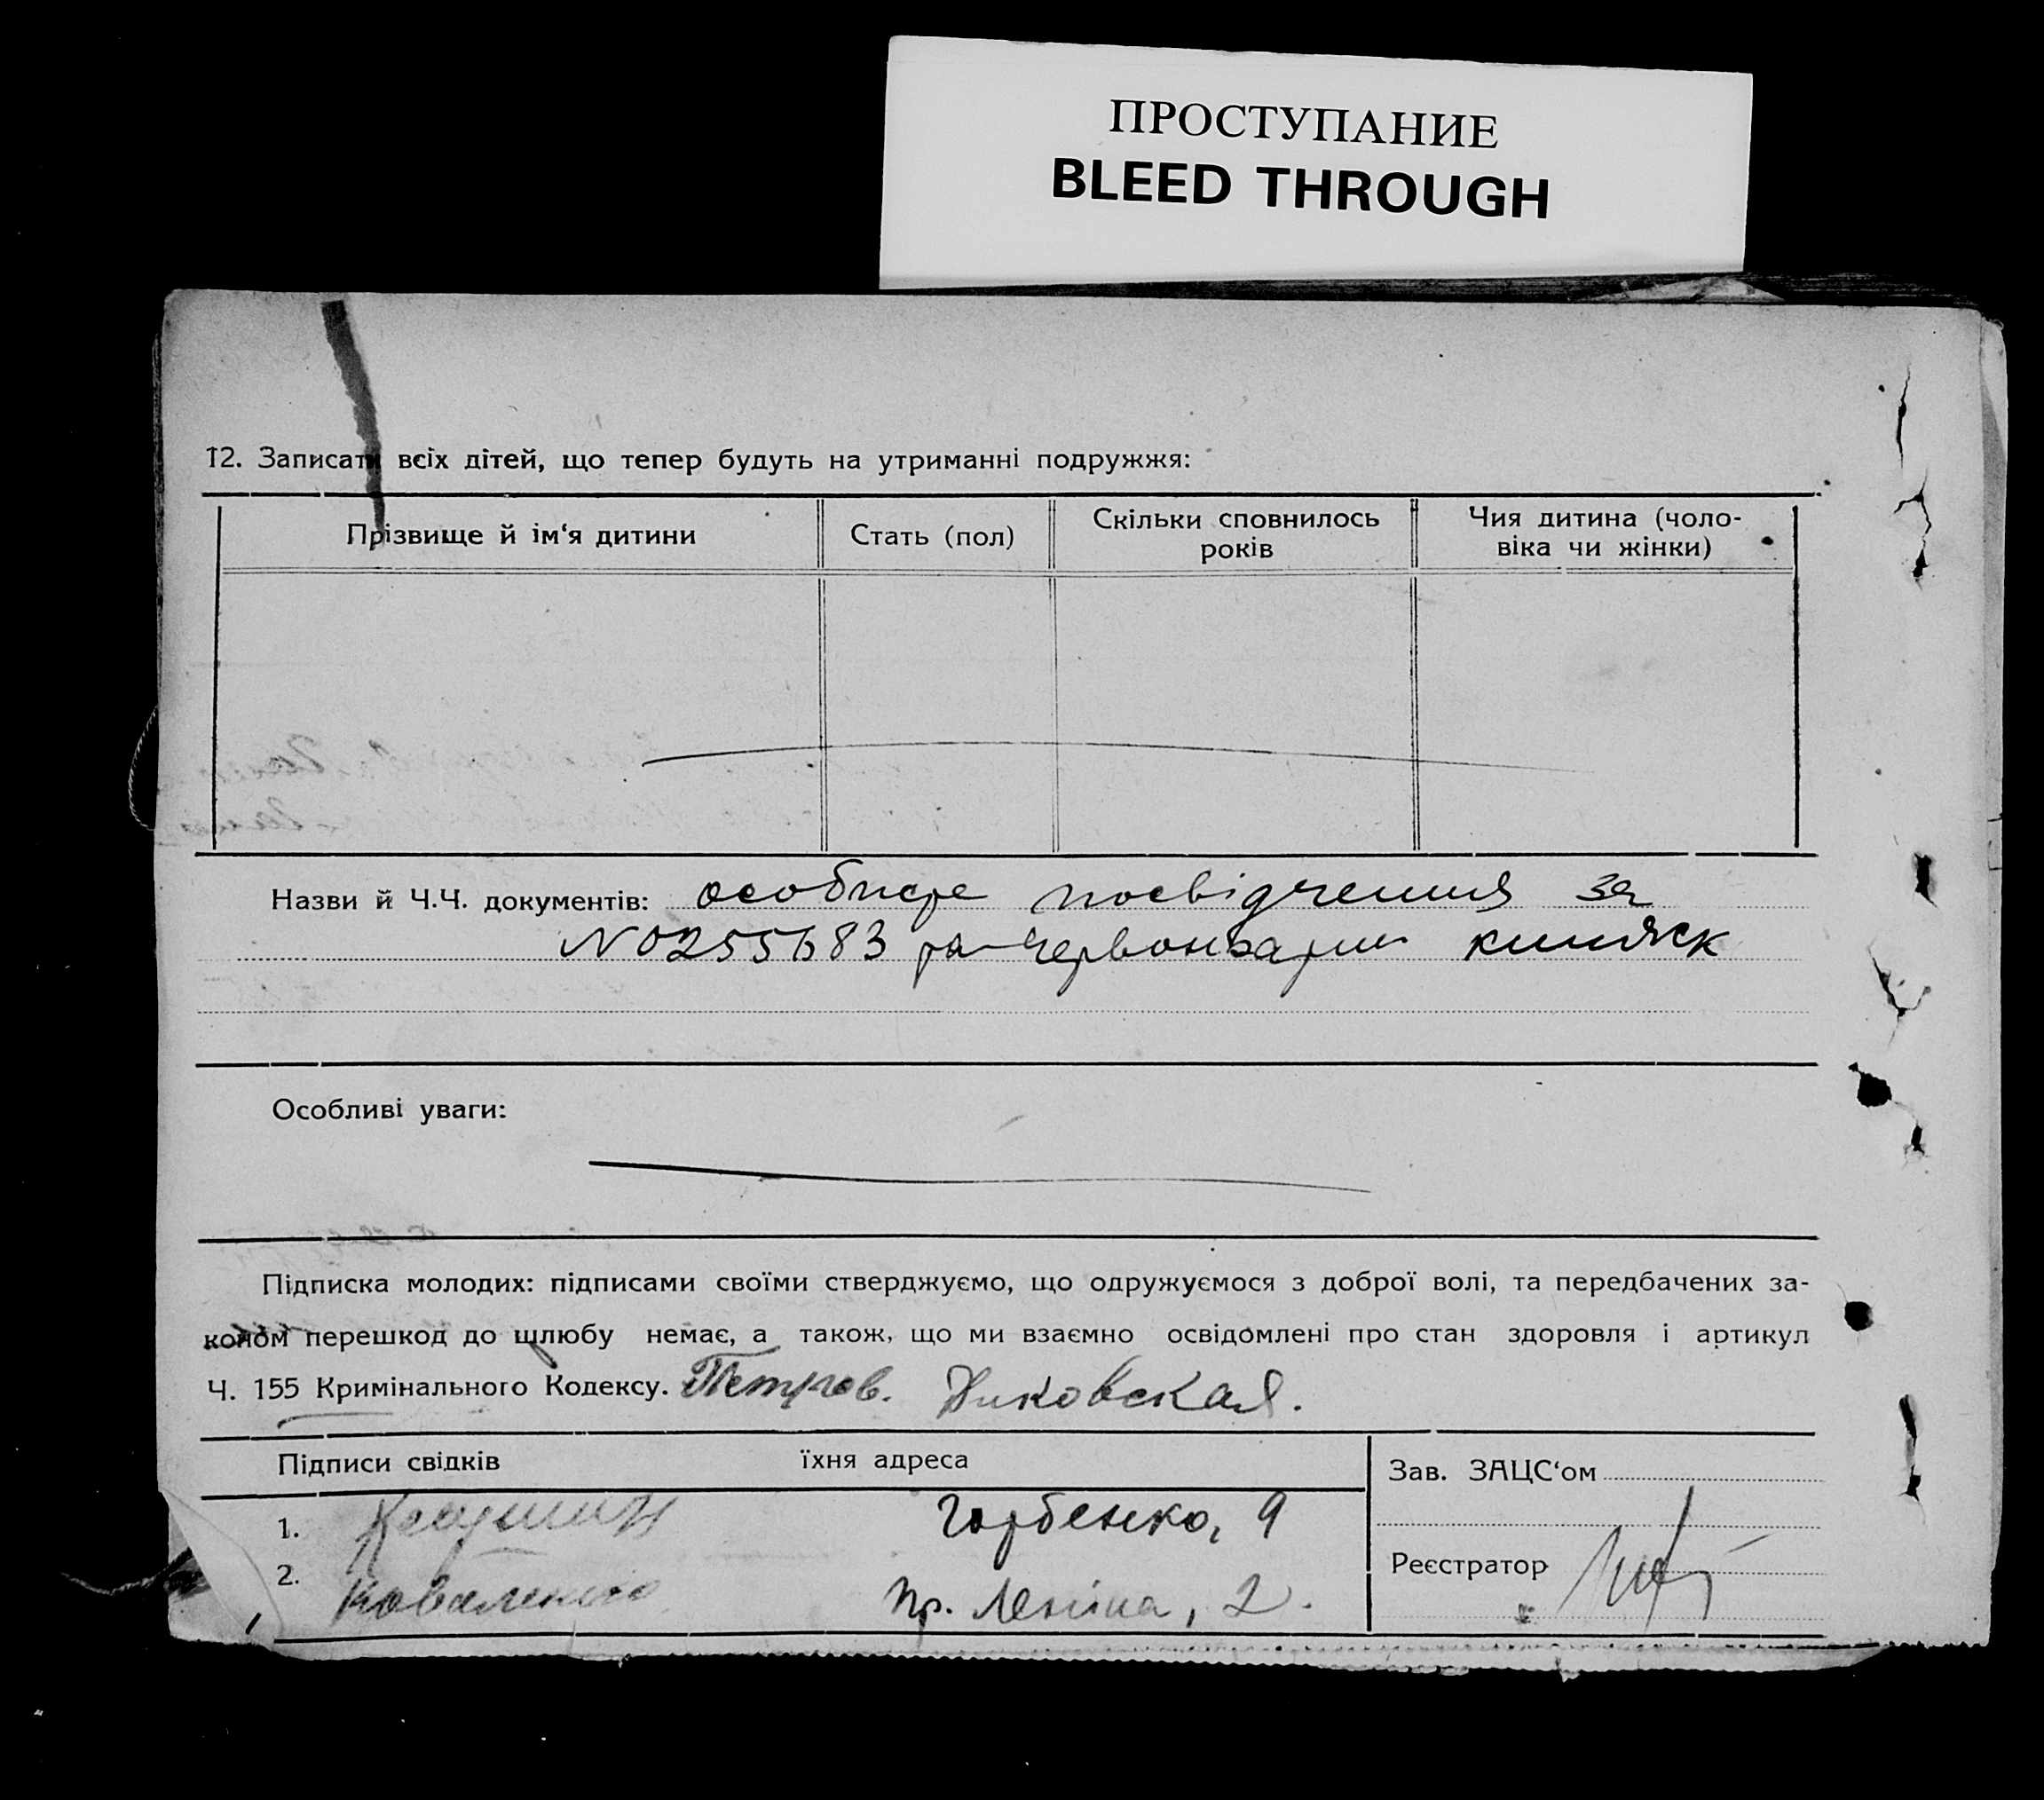 ПРОСТУПАНИЕ
BLEED THROUGH
12. Записати всіх дітей, що тепер будуть на утриманні подружжя:
Прізвище й ім‘я дитини
Стать (пол)
Скільки сповнилось
років
Чия дитина (чоло-
віка чи жінки)
Назви й Ч.Ч. документів: особисте посвідчення за
N0255683 та червонварм книжк
Особливі уваги:
Підписка молодих: підписами своїми стверджуємо, що одружуємося з доброї волі, та передбачених за-
коном перешкод до шлюбу немає, а також, що ми взаємно освідомлені про стан здоровля і артикул
Ч. 155 Кримінального Кодексу. Петров. Янковская.
Підписи свідків їхня адреса
Зав. ЗАЦС‘ом
1. Горбенко, 9
2. Коваленко Пр. Леніна, 2.
Реєстратор